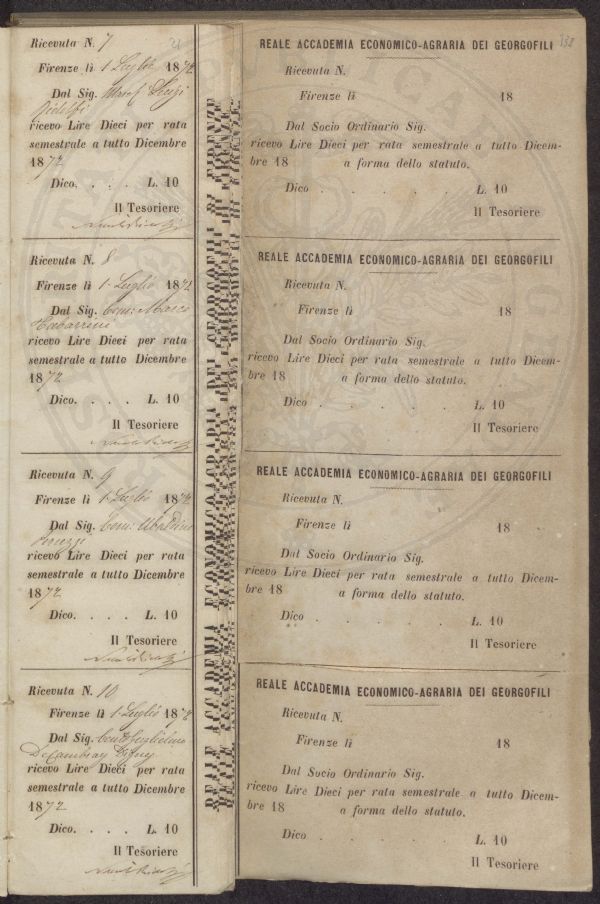 Ricevuta N. 7
Firenze lì 1 Luglio 1872
Dal Sig. March Luigi
Ridolfi
ricevo Lire Dieci per rata
semestrale a tutto Dicembre
1872
Dico. . . . L. 10
Il Tesoriere
Ricevuta N. 8
Firenze lì 1 Luglio 1872
Dal Sig. Com: Marco
Tabarrini
ricevo Lire Dieci per rata
semestrale a tutto Dicembre
1872
Dico. . . . L. 10
Il Tesoriere
Ricevuta N. 9
Firenze lì 1 Luglio 1872
Dal Sig. Com: Ubaldino
Peruzzi
ricevo Lire Dieci per rata
semestrale a tutto Dicembre
1872
Dico. . . . L. 10
Il Tesoriere
Ricevuta N. 10
Firenze lì 1 Luglio 1872
Dal Sig. Guglielmo
De Cambray Digny
ricevo Lire Dieci per rata
semestrale a tutto Dicembre
1872
Dico. . . . L. 10
Il Tesoriere
REALE ACCADEMIA ECONOMICO-AGRARIA DEI GEORGOFILI DI FIRENZE
REALE ACCADEMIA ECONOMICO-AGRARIA DEI GEORGOFILI
Ricevuta N.
Firenze lì 18
Dal Socio Ordinario Sig.
ricevo Lire Dieci per rata semestrale a tutto Dicem-
bre 18 a forma dello statuto.
Dico . . . . . L. 10
Il Tesoriere
REALE ACCADEMIA ECONOMICO-AGRARIA DEI GEORGOFILI
Ricevuta N.
Firenze lì 18
Dal Socio Ordinario Sig.
ricevo Lire Dieci per rata semestrale a tutto Dicem-
bre 18 a forma dello statuto.
Dico . . . . . L. 10
Il Tesoriere
REALE ACCADEMIA ECONOMICO-AGRARIA DEI GEORGOFILI
Ricevuta N.
Firenze lì 18
Dal Socio Ordinario Sig.
ricevo Lire Dieci per rata semestrale a tutto Dicem-
bre 18 a forma dello statuto.
Dico . . . . . L. 10
Il Tesoriere
REALE ACCADEMIA ECONOMICO-AGRARIA DEI GEORGOFILI
Ricevuta N.
Firenze lì 18
Dal Socio Ordinario Sig.
ricevo Lire Dieci per rata semestrale a tutto Dicem-
bre 18 a forma dello statuto.
Dico . . . . . L. 10
Il Tesoriere